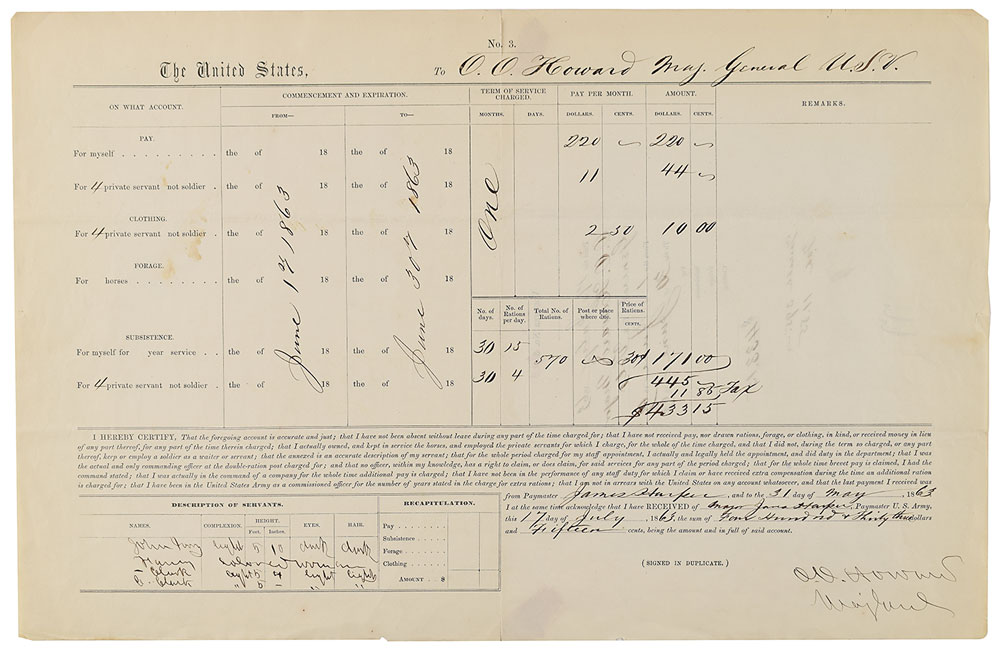 No. 3.
The United States, To O. O. Howard Maj. General U.S.V.
ON WHAT ACCOUNT. COMMENCEMENT AND EXPIRATION. TERM OF SERVICE CHARGED. PAY PER MONTH. AMOUNT. REMARKS.
FROM— TO— MONTHS. DAYS. DOLLARS. CENTS. DOLLARS. CENTS.
PAY.
For myself . . . . . . . . . the of 18 the of 18 220 220
For 4 private servant not soldier . the of 18 the of 18 11 44
June 1st 1863 June 30th 1863 One
CLOTHING.
For 4 private servant not soldier . the of 18 the of 18 2 50 10 00
FORAGE.
For horses . . . . . . . . the of 18 the of 18
No. of days. No. of Rations per day. Total No. of Rations. Post or place where due. Price of Rations.
CENTS.
SUBSISTENCE.
For myself for year service . . the of 18 the of 18 30 15 570 30¢ 171 00
For 4 private servant not soldier . the of 18 the of 18 30 4 445
11 85 Tax
$433 15
I HEREBY CERTIFY, That the foregoing account is accurate and just; that I have not been absent without leave during any part of the time charged for; that I have not received pay, nor drawn rations, forage, or clothing, in kind, or received money in lieu
of any part thereof, for any part of the time therein charged; that I actually owned, and kept in service the horses, and employed the private servants for which I charge, for the whole of the time charged, and that I did not, during the term so charged, or any part
thereof, keep or employ a soldier as a waiter or servant; that the annexed is an accurate description of my servant; that for the whole period charged for my staff appointment, I actually and legally held the appointment, and did duty in the department; that I was
the actual and only commanding officer at the double-ration post charged for; and that no officer, within my knowledge, has a right to claim, or does claim, for said services for any part of the period charged; that for the whole time brevet pay is claimed, I had the
command stated; that I was actually in the command of a company for the whole time additional pay is charged; that I have not been in the performance of any staff duty for which I claim or have received extra compensation during the time an additional ration
is charged for; that I have been in the United States Army as a commissioned officer for the number of years stated in the charge for extra rations; that I am not in arrears with the United States on any account whatsoever, and that the last payment I received was
from Paymaster James Harper, and to the 31 day of May, 1863
I at the same time acknowledge that I have RECEIVED of Major Harper, Paymaster U. S. Army,
this 17 day of July, 1863, the sum of Four Hundred & Thirty three dollars
and Fifteen cents, being the amount and in full of said account.
DESCRIPTION OF SERVANTS. RECAPITULATION.
NAMES. COMPLEXION. HEIGHT. EYES. HAIR.
Feet. Inches.
Pay . . . .
Subsistence .
Forage . . .
Clothing . . .
AMOUNT . . $
John light 5 10 dark dark
colored woman
Clark light 5 4 light light
C. Clark " 5 " "
(SIGNED IN DUPLICATE.)
O.O. Howard
Maj. Genl